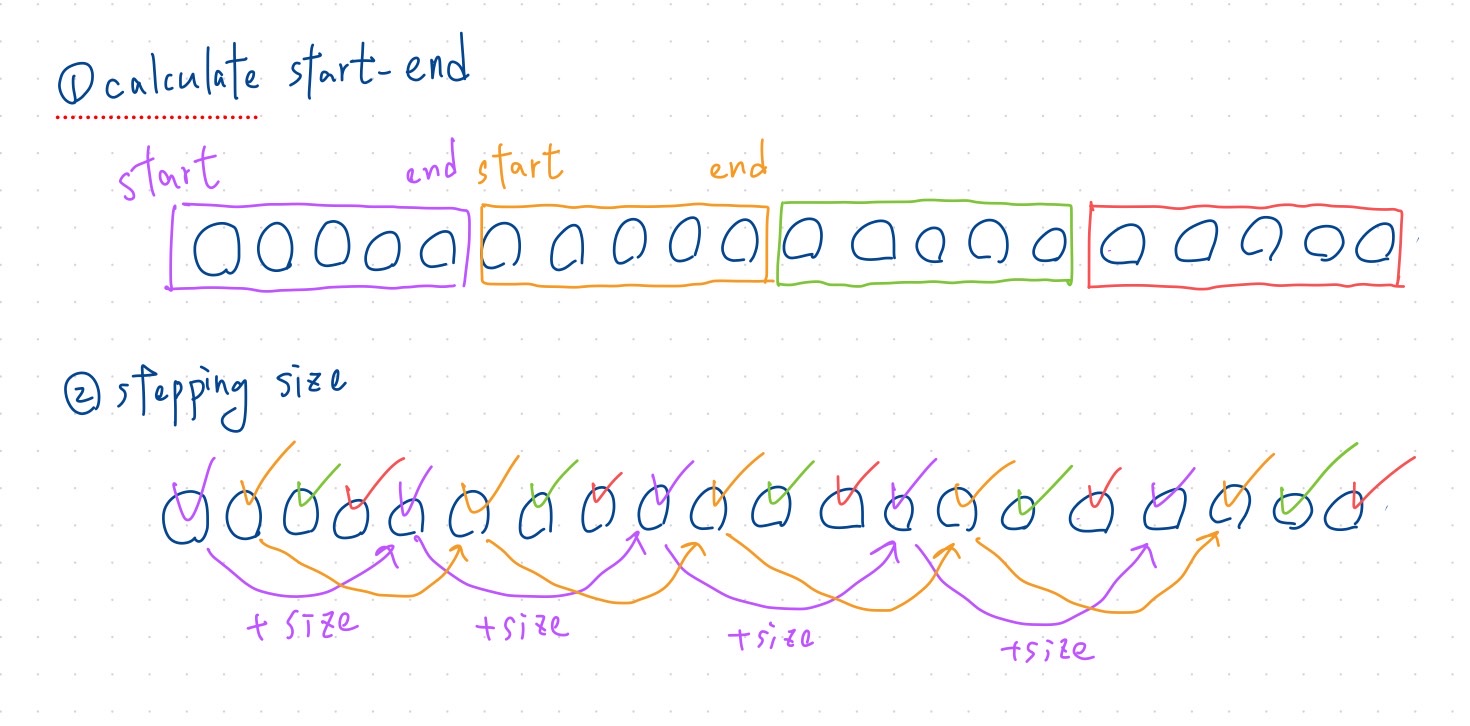 ① calculate start-end
start end start end
② stepping size
+ size +size +size +size